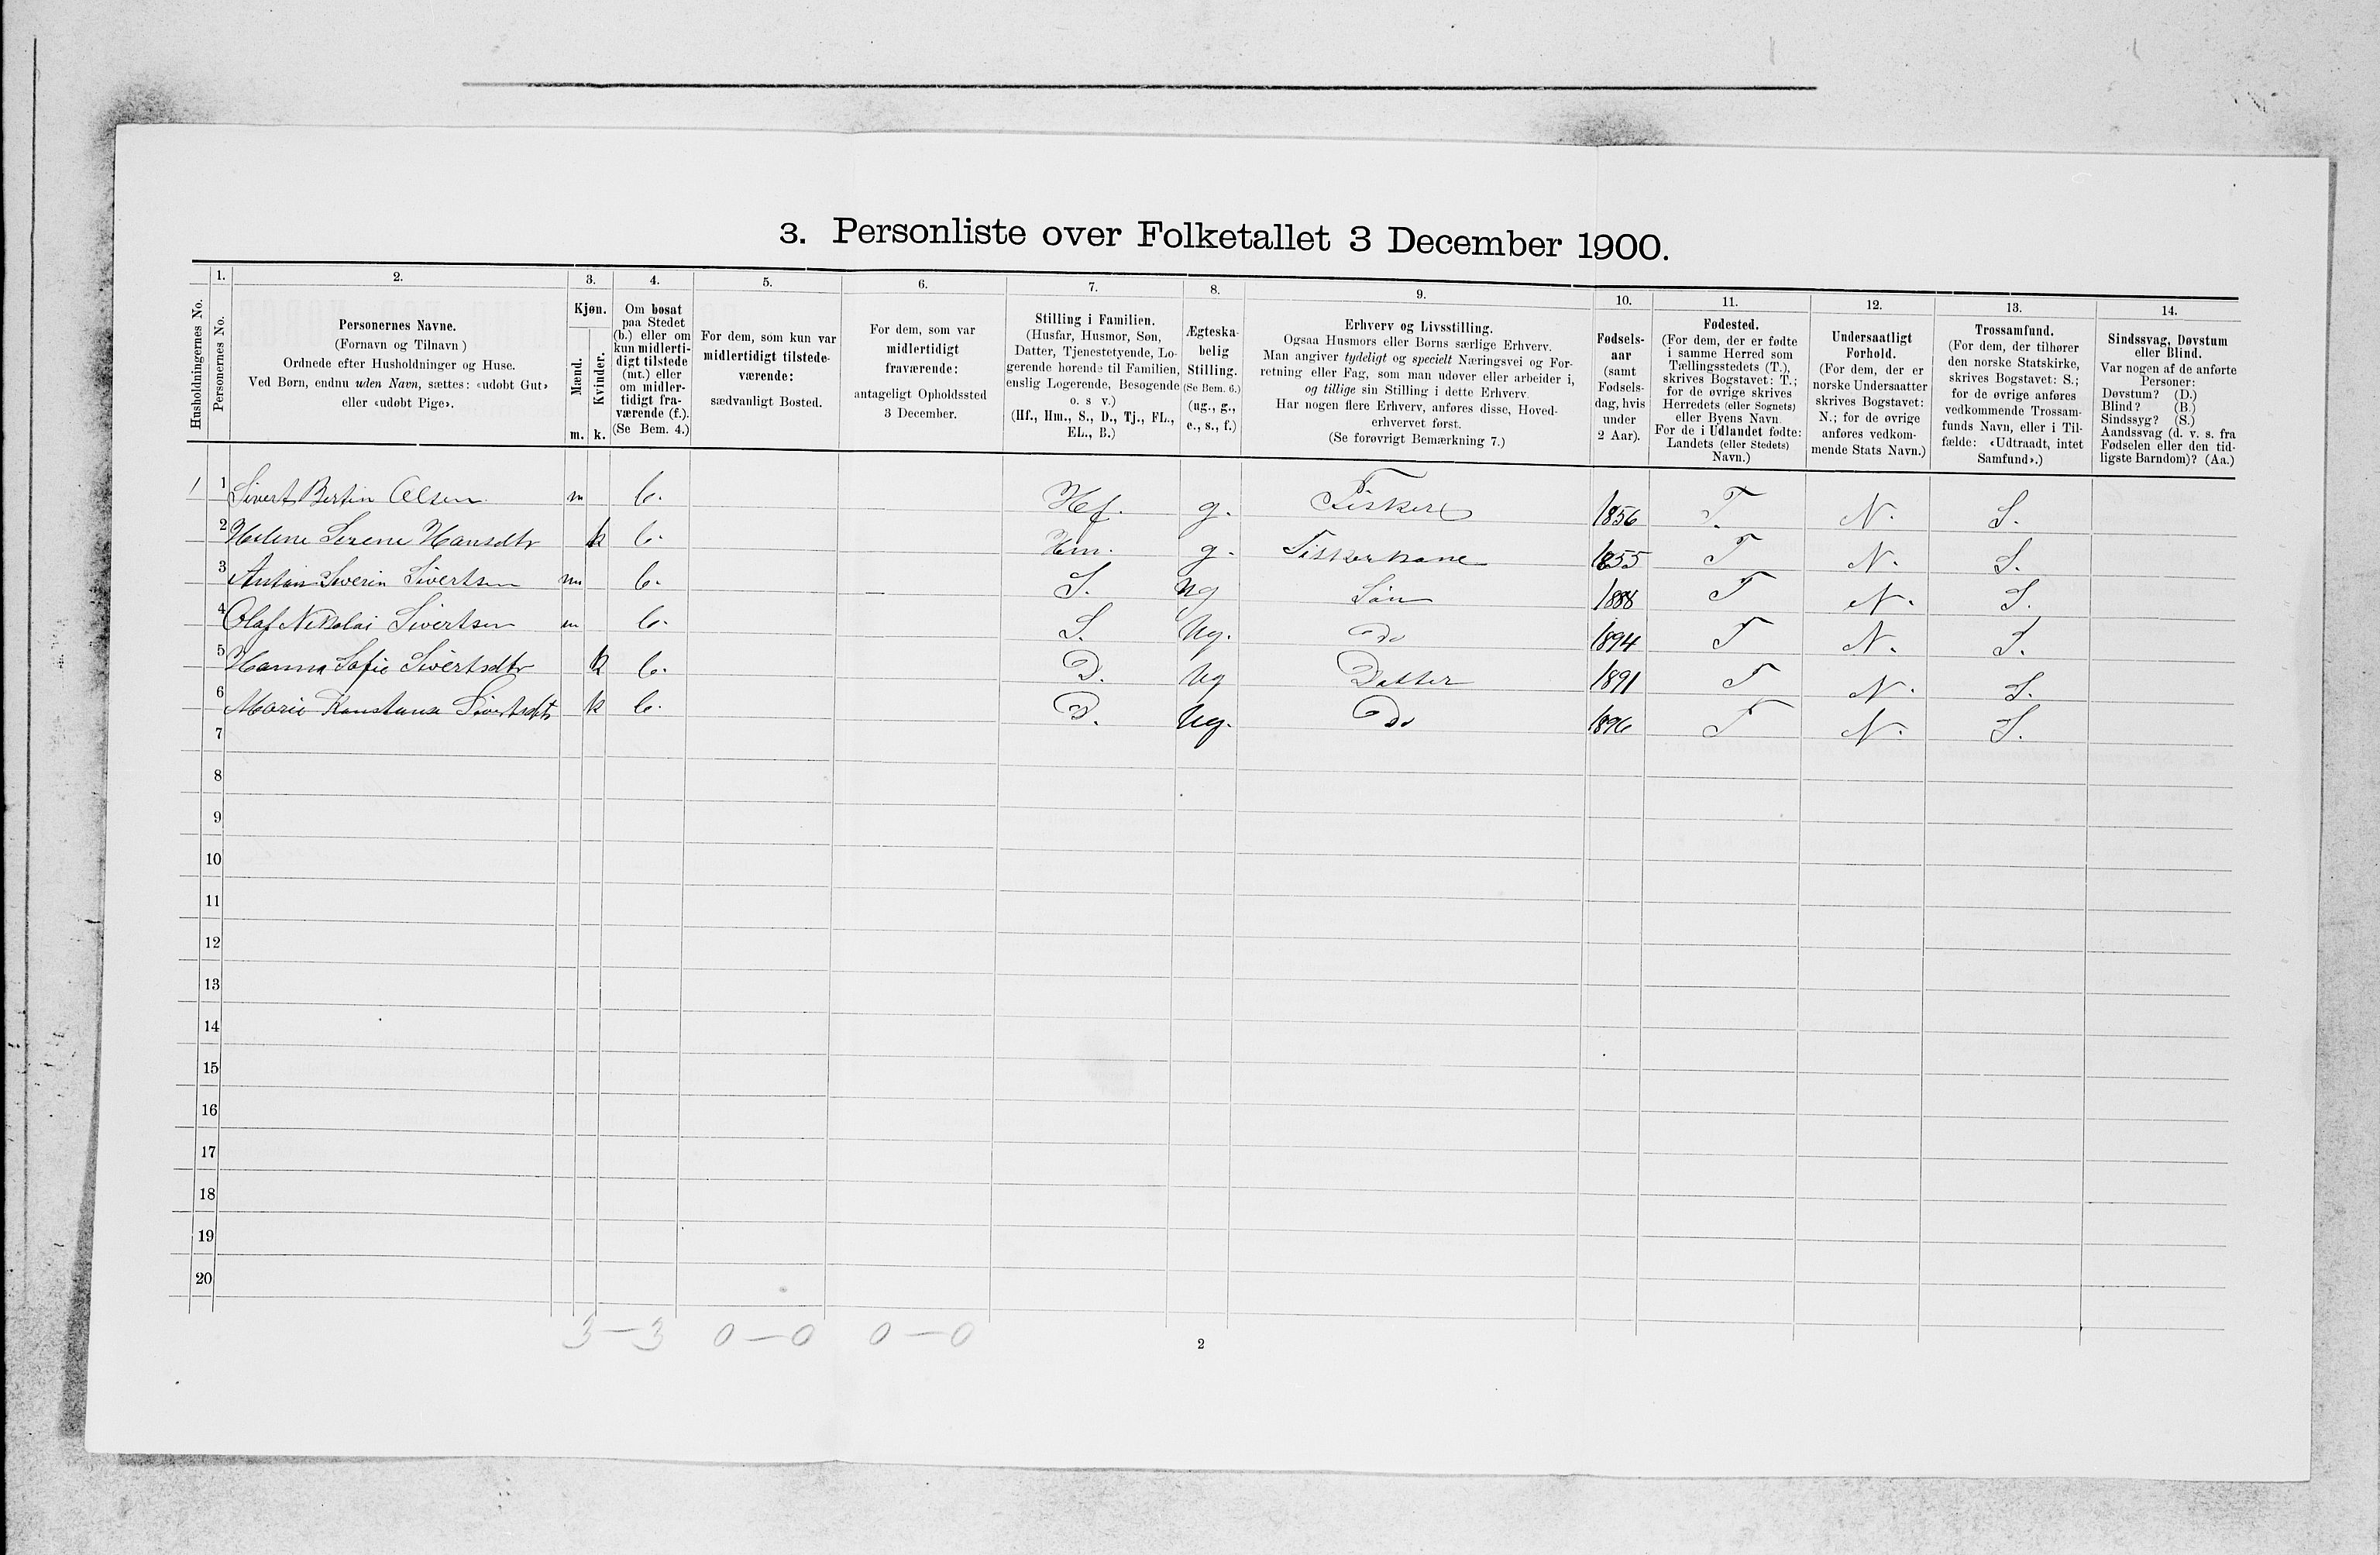 3. Personliste over Folketallet 3 December 1900.
1. 2. 3. 4. 5. 6. 7. 8. 9. 10. 11. 12. 13. 14.
Husholdningernes No.
Personernes No.
Personernes Navne.
(Fornavn og Tilnavn)
Ordnede efter Husholdninger og Huse.
Ved Børn, endnu uden Navn, sættes: «udøbt Gut»
eller «udøbt Pige».
Kjøn.
Mænd.
Kvinder.
m. k.
Om bosat
paa Stedet
(b.) eller om
kun midlerti-
digt tilstede
(mt.) eller
om midler-
tidigt fra-
værende (f.).
(Se Bem. 4.)
For dem, som kun var
midlertidigt tilstede-
værende:
sædvanligt Bosted.
For dem, som var
midlertidigt
fraværende:
antageligt Opholdssted
3 December.
Stilling i Familien.
(Husfar, Husmor, Søn,
Datter, Tjenestetyende, Lo-
gerende hørende til Familien,
enslig Logerende, Besøgende
o. s v.)
(Hf., Hm., S., D., Tj., FL.,
EL., B.)
Ægteska-
belig
Stilling.
(Se Bem. 6.)
(ug., g.,
e., s., f.)
Erhverv og Livsstilling.
Ogsaa Husmors eller Børns særlige Erhverv.
Man angiver tydeligt og specielt Næringsvei og For-
retning eller Fag, som man udøver eller arbeider i,
og tillige sin Stilling i dette Erhverv.
Har nogen flere Erhverv, anføres disse, Hoved-
erhvervet først.
(Se forøvrigt Bemærkning 7.)
Fødsels-
aar
(samt
Fødsels-
dag, hvis
under
2 Aar).
Fødested.
(For dem, der er fødte
i samme Herred som
Tællingsstedets (T.),
skrives Bogstavet: T.;
for de øvrige skrives
Herredets (eller Sognets)
eller Byens Navn.
For de i Udlandet fødte:
Landets (eller Stedets)
Navn.)
Undersaatligt
Forhold.
(For dem, der er
norske Undersaatter
skrives Bogstavet:
N.; for de øvrige
anføres vedkom-
mende Stats Navn.)
Trossamfund.
(For dem, der tilhører
den norske Statskirke,
skrives Bogstavet: S.;
for de øvrige anføres
vedkommende Trossam-
funds Navn, eller i Til-
fælde: «Udtraadt, intet
Samfund».)
Sindssvag, Døvstum
eller Blind.
Var nogen af de anførte
Personer:
Døvstum? (D.)
Blind? (B.)
Sindssyg? (S.)
Aandssvag (d. v. s. fra
Fødselen eller den tid-
ligste Barndom)? (Aa.)
1 1 Sivert Bertin Olsen m b. Hf. g. Fisker 1856 T. N. S.
2 Helene Serene Hansdtr k b. Hm. g. Fiskerkone 1855 T N. S.
3 Anton Severin Sivertsen m b. — S. ug Søn 1888 T N. S.
4 Olaf Nikolai Sivertsen m b. S. Ug. Do 1894 T N. S.
5 Hanna Sofie Sivertsdtr k b. D. Ug Datter 1891 T N. S.
6 Marie Konstanse Sivertsdtr k b. D. Ug. Do 1896 T N. S.
7
8
9
10
11
12
13
14
15
16
17
18
19
20
3 — 3 0 — 0 0 — 0
2